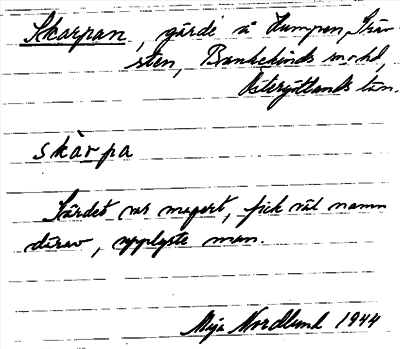 Skarpan, gärde å Humpen, Grav-
sten, Bankekinds sn o hd,
Östergötlands län.
skàrpa
Gärdet var magert, fick väl namn
därav, upplyste man.
Maja Nordlund 1944